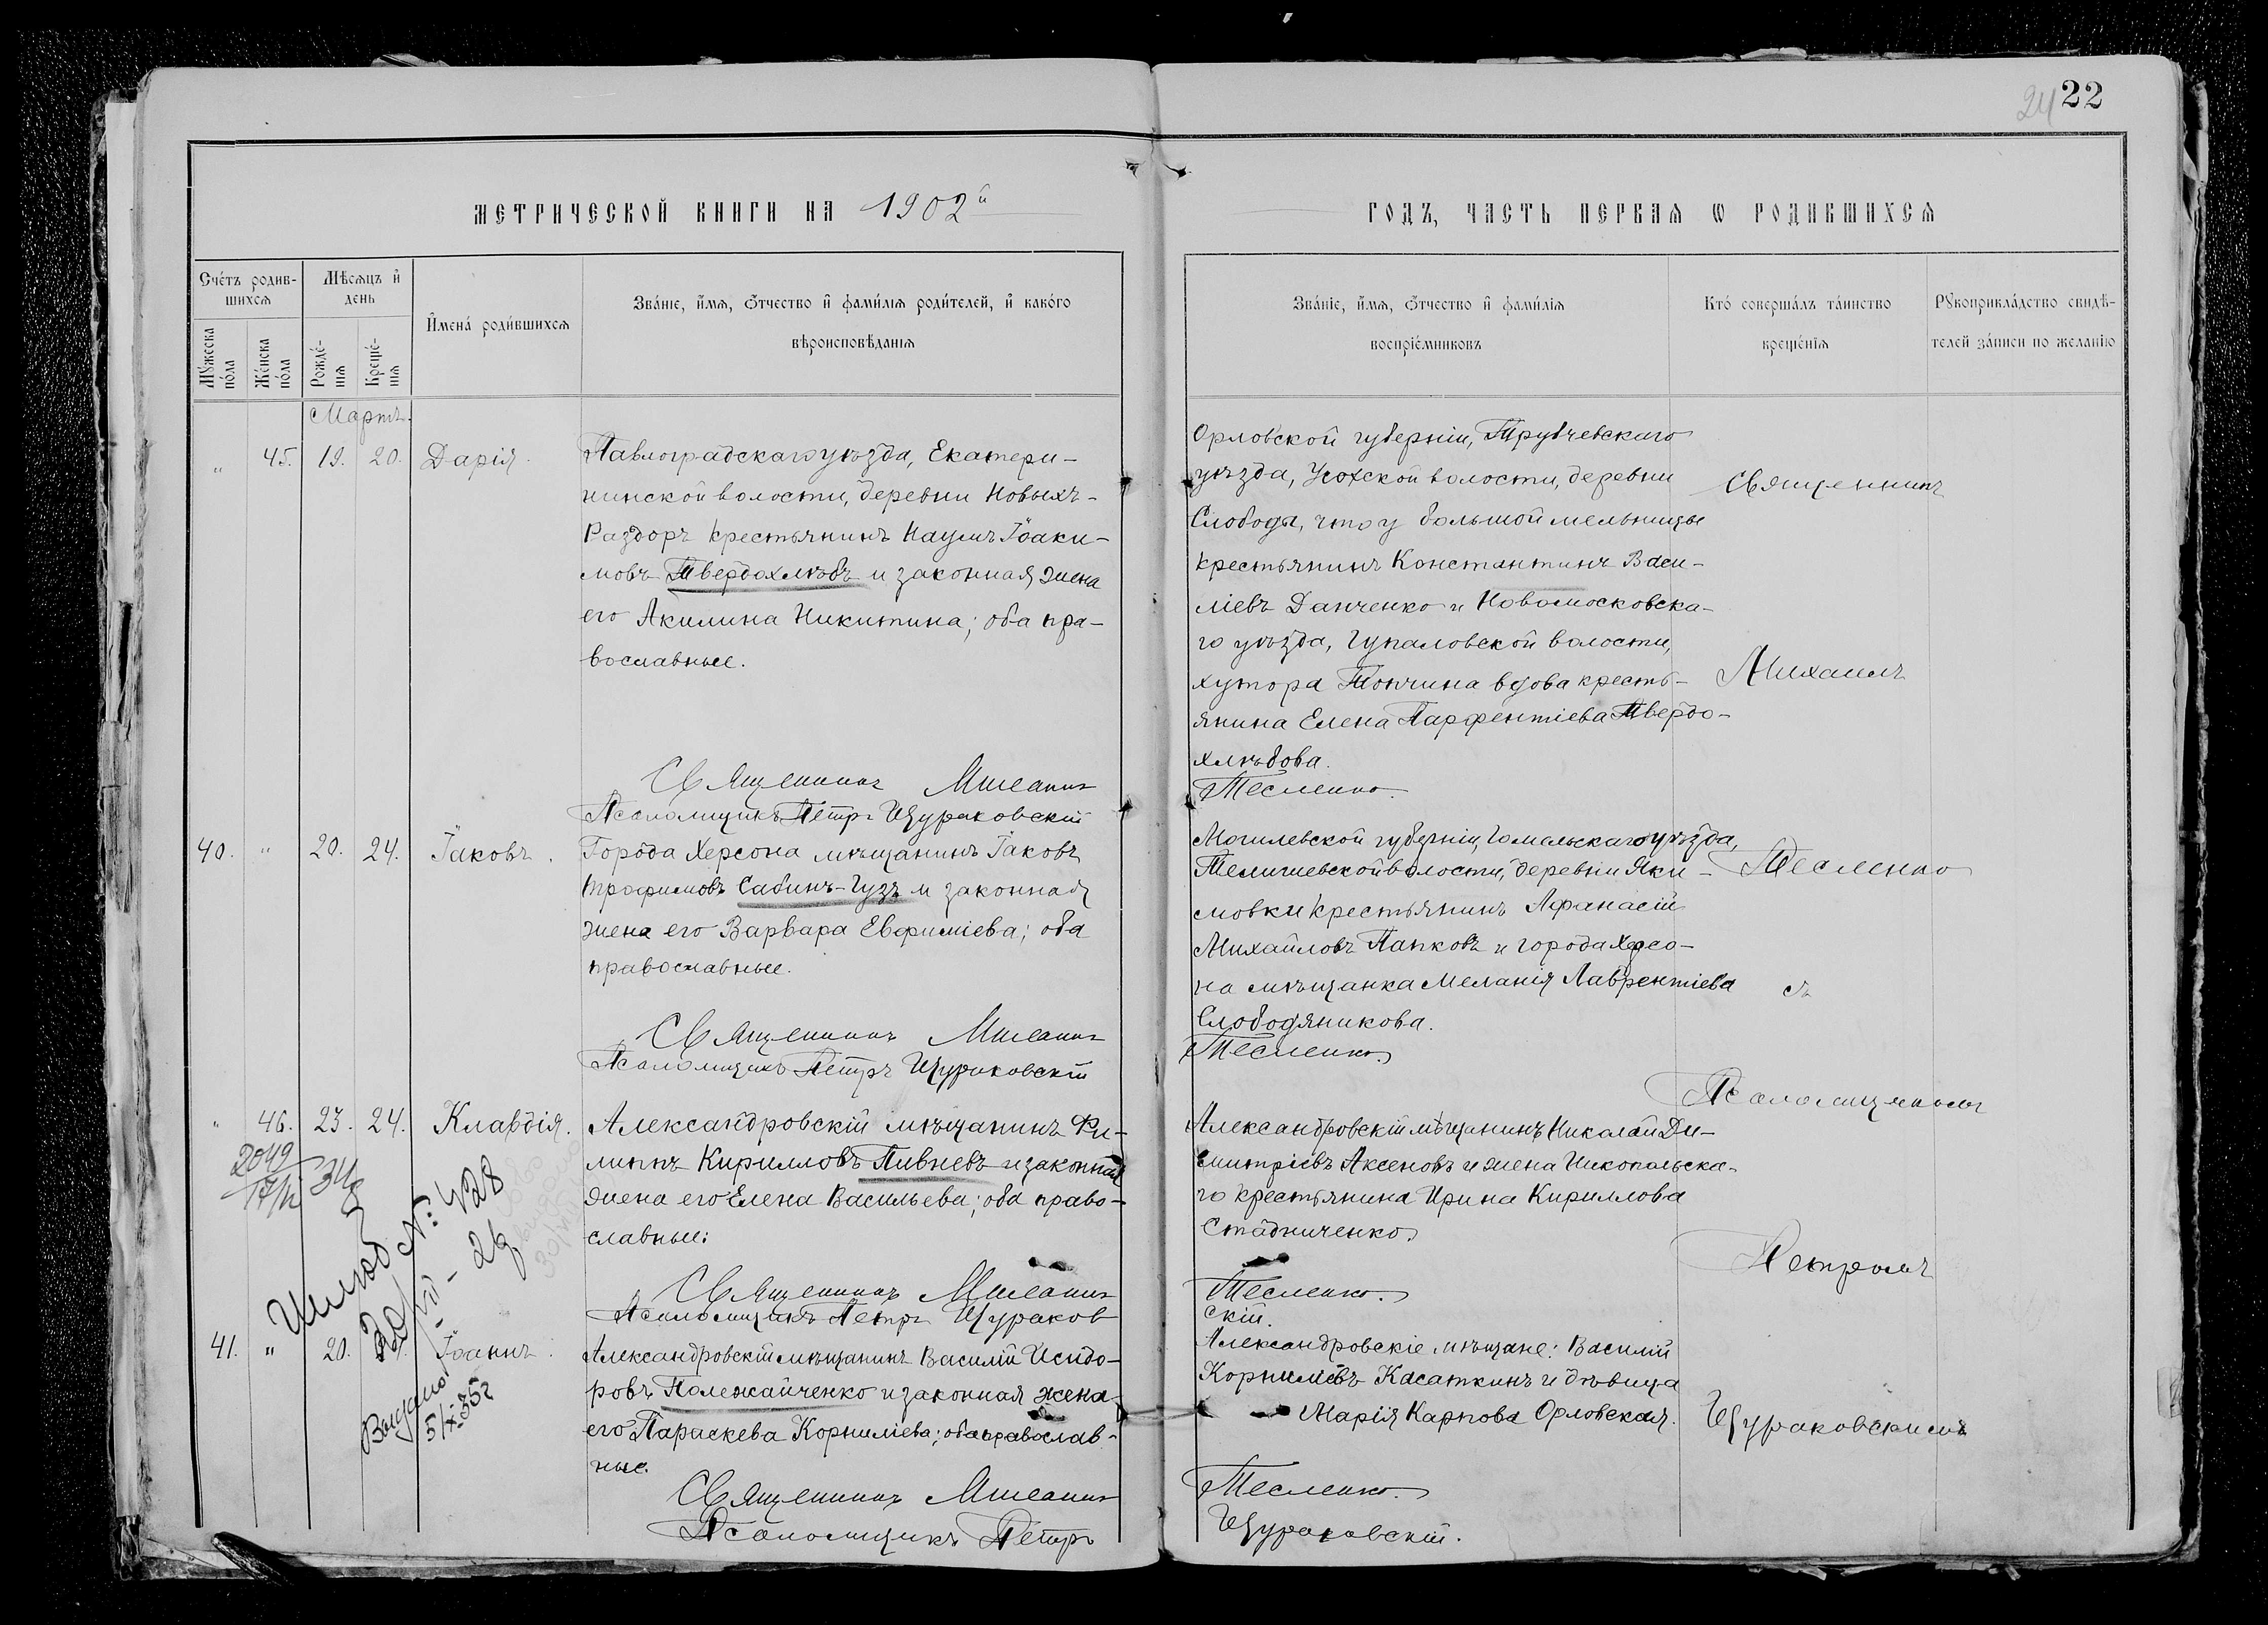 24 22
МЕТРИЧЕСКОЙ КНИГИ НА 1902й
ГОДЪ, ЧАСТЬ ПЕРВАЯ Ѡ РОДИВШИХСЯ
Сче́тъ родив-
шихся
Мѣсяцъ и҆
день
Му́жеска
по́ла
Же́нска
по́ла
Рожде́-
нія
Креще́-
нія
И҆мена́ роди́вшихся
Зва́ніе, и҆́мя, ѻ҆́тчество и҆ фами́лія роди́телей, и҆ како́го
вѣроисповѣ́данія
Зва́ніе, и҆́мя, ѻ҆́тчество и҆ фами́лія
воспріе́мниковъ
Кто̀ соверша́лъ та́инство
креще́нія
Рукоприкла́дство свидѣ́-
телей за́писи по жела́нію
Мартъ.
" 45. 19. 20. Дарія.
Павлоградскаго уѣзда, Екатери-
нинской волости, деревни Новыхъ-
Раздоръ крестьянинъ Наумъ Іоаки-
мовъ Твердохлѣбъ и законная жена
его Акилина Никитина; оба пра-
вославные.
Священникъ Михаилъ
Псаломщикъ Петръ Щураковскій
Орловской губерніи, Трубчевскаго
уѣзда, Усохской волости, деревни
Слободы, что у большой мельницы
крестьянинъ Константинъ Васи-
ліевъ Данченко и Новомосковска-
го уѣзда, Гупаловской волости,
хутора Тончина вдова кресть-
янина Елена Парфентіева Твердо-
хлѣбова.
Тесленко.
Священникъ
Михаилъ
Тесленко
съ
Псаломщикомъ
Петромъ
Щураковскимъ
40. " 20. 24. Іаковъ.
Города Херсона мѣщанинъ Іаковъ
Трофимовъ Сабинъ-Гузъ и законная
жена его Варвара Евфиміева; оба
православные.
Священникъ Михаилъ
Псаломщикъ Петръ Щураковскій
Могилевской губерніи, Гомельскаго уѣзда,
Телишевской волости, деревни Яки-
мовки крестьянинъ Афанасій
Михайловъ Папковъ и города Херсо-
на мѣщанка Меланія Лаврентіева
Слободяникова.
Тесленко
" 46. 23. 24. Клавдія.
2049
17/II
Александровскій мѣщанинъ Фи-
липпъ Кирилловъ Пивневъ и законная
жена его Елена Васильева; оба право-
славные:
Священникъ Михаилъ
Псаломщикъ Петръ Щураков
Александровскій мѣщанинъ Николай Ди-
митріевъ Аксеновъ и жена Никопольска-
го крестьянина Ирина Кириллова
Стадниченко.
Тесленко.
скій.
№ 428
Выдано
41. " 20. Іоаннъ.
Александровскій мѣщанинъ Василій Исидо-
ровъ Полежайченко и законная жена
его Параскева Корниліева; оба православ-
ные.
Священникъ Михаилъ
Псаломщикъ Петръ
Александровскіе мѣщане: Василій
Корниліевъ Касаткинъ и дѣвица
Марія Карпова Орловская.
Тесленко.
Щураковскій.